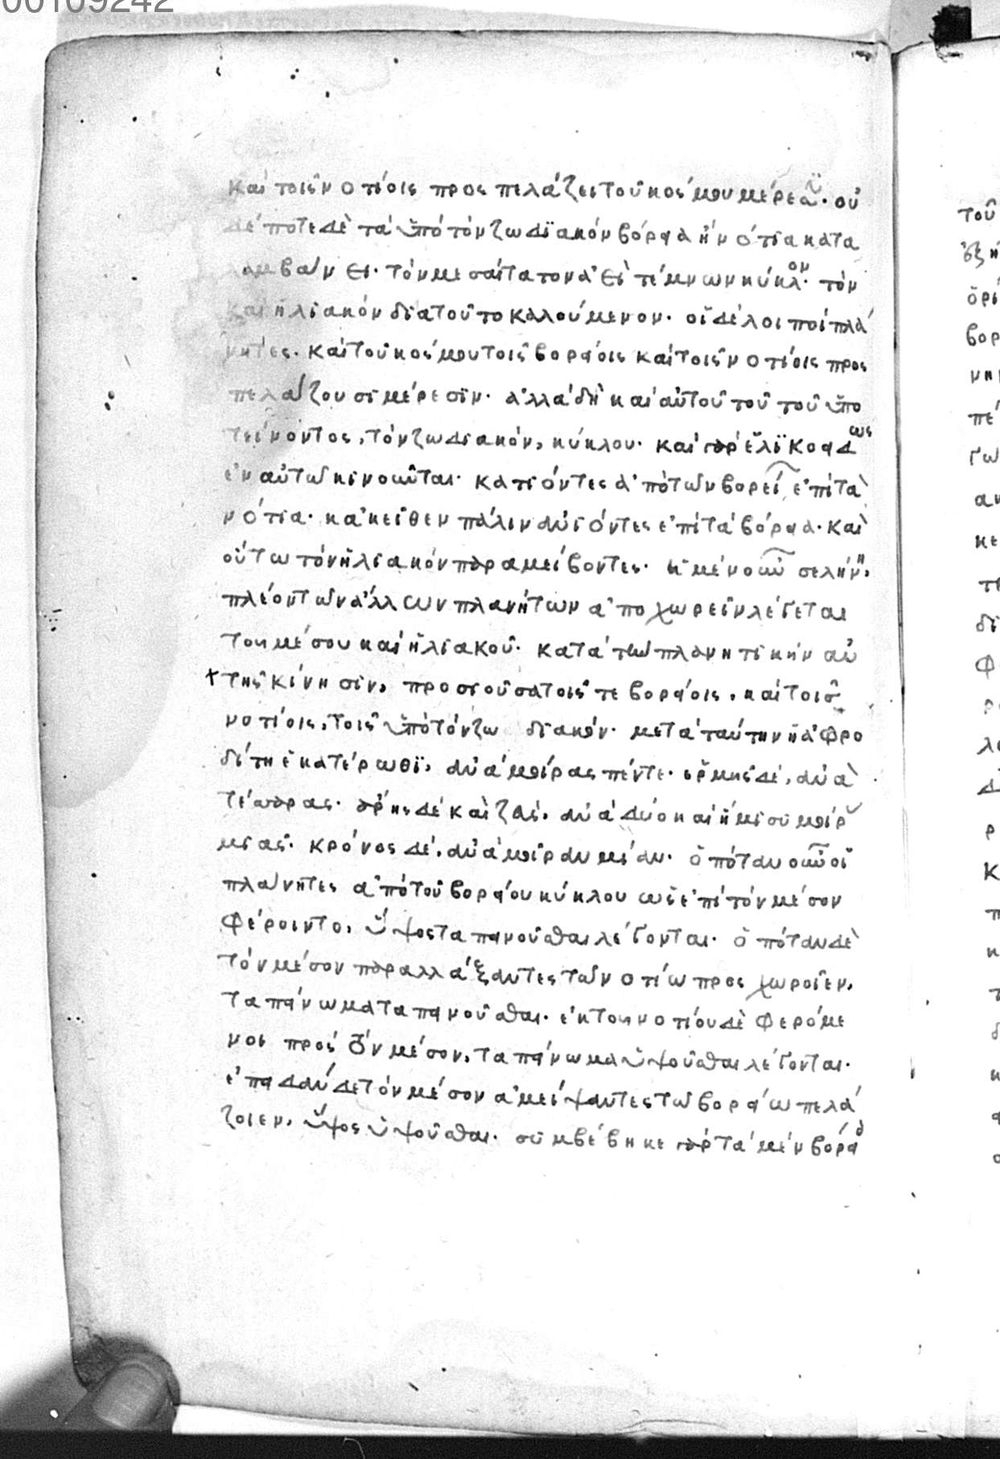 00109242
καὶ τοῖς νοτίοις προσπελάζει τοῦ κόσμου μέρεσιν. οὐ
δέποτε δὲ τὰ ὑπὸ τὸν ζωδϊακὸν βόρεια ἢ νότια κατα
λαμβάνει. τὸν μεσαίτατον ἀεὶ τέμνων κύκλον. τὸν
καὶ ἡλιακὸν διὰ τοῦτο καλούμενον. οἱ δὲ λοιποὶ πλά
νητες. καὶ τοῦ κόσμου τοῖς βορείοις καὶ τοῖς νοτίοις προσ
πελάζουσι μέρεσϊν. ἀλλὰ δὴ καὶ αὐτοῦ τοῦ τοῦ ὑπο
τείνοντος, τὸν ζωδιακόν, κύκλου. καὶ γὰρ ἑλϊκοειδῶς
ἐν αὐτῷ κινοῦνται. κατιόντες ἀπὸ τῶν βορείων ἐπὶ τὰ
νότια. κἀκεῖθεν πάλιν ἀνιόντες ἐπὶ τὰ βόρεια. καὶ
οὕτω τὸν ἡλιακὸν παραμείβοντες. ἡ μὲν οὖν σελήνη,
πλέον τῶν ἄλλων πλανήτων ἀποχωρεῖν λέγεται
τοῦ μέσου καὶ ἡλιακοῦ. κατὰ τὴν πλανητικὴν αὐ
τῆς κίνησιν, προσιοῦσα τοῖς τε βορείοις, καὶ τοῖς
νοτίοις, τοῖς ὑπὸ τὸν ζωδιακόν. μετὰ ταύτην ἡ ἀφρο
δίτη ἑκατέρωθϊ, ἀνὰ μοίρας πέντε. ἑρμῆς δὲ, ἀνὰ
τέσσαρας. ἄρης δὲ καὶ ζεὺς, ἀνὰ δύο καὶ ἥμισυ μοίρας
μιᾶς. κρόνος δὲ, ἀνὰ μοῖραν μίαν. ὁπόταν οὖν οἱ
πλάνητες ἀπὸ τοῦ βορείου κύκλου ὡς ἐπὶ τὸν μέσον
φέροιντο, ὕψος ταπεινοῦσθαι λέγονται. ὁπόταν δὲ
τὸν μέσον παραλλάξαντες τῶ νοτίω προσχωροῖεν,
ταπείνωμα ταπεινοῦσθαι. ἐκ τοῦ νοτίου δὲ φερόμε
νοι πρὸς τὸν μέσον, ταπείνωμα ὑψοῦσθαι λέγονται.
ἐπειδὰν δὲ τὸν μέσον ἀμείψαντες τῶ βορείω πελά
ζοιεν, ὕψος ὑψοῦσθαι. συμβέβηκε γὰρ τὰ μὲν βόρεια